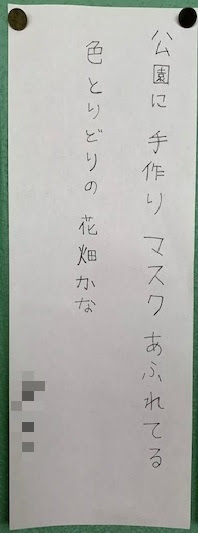 公園に 手作り マスク あふれてる
色とりどりの 花畑かな